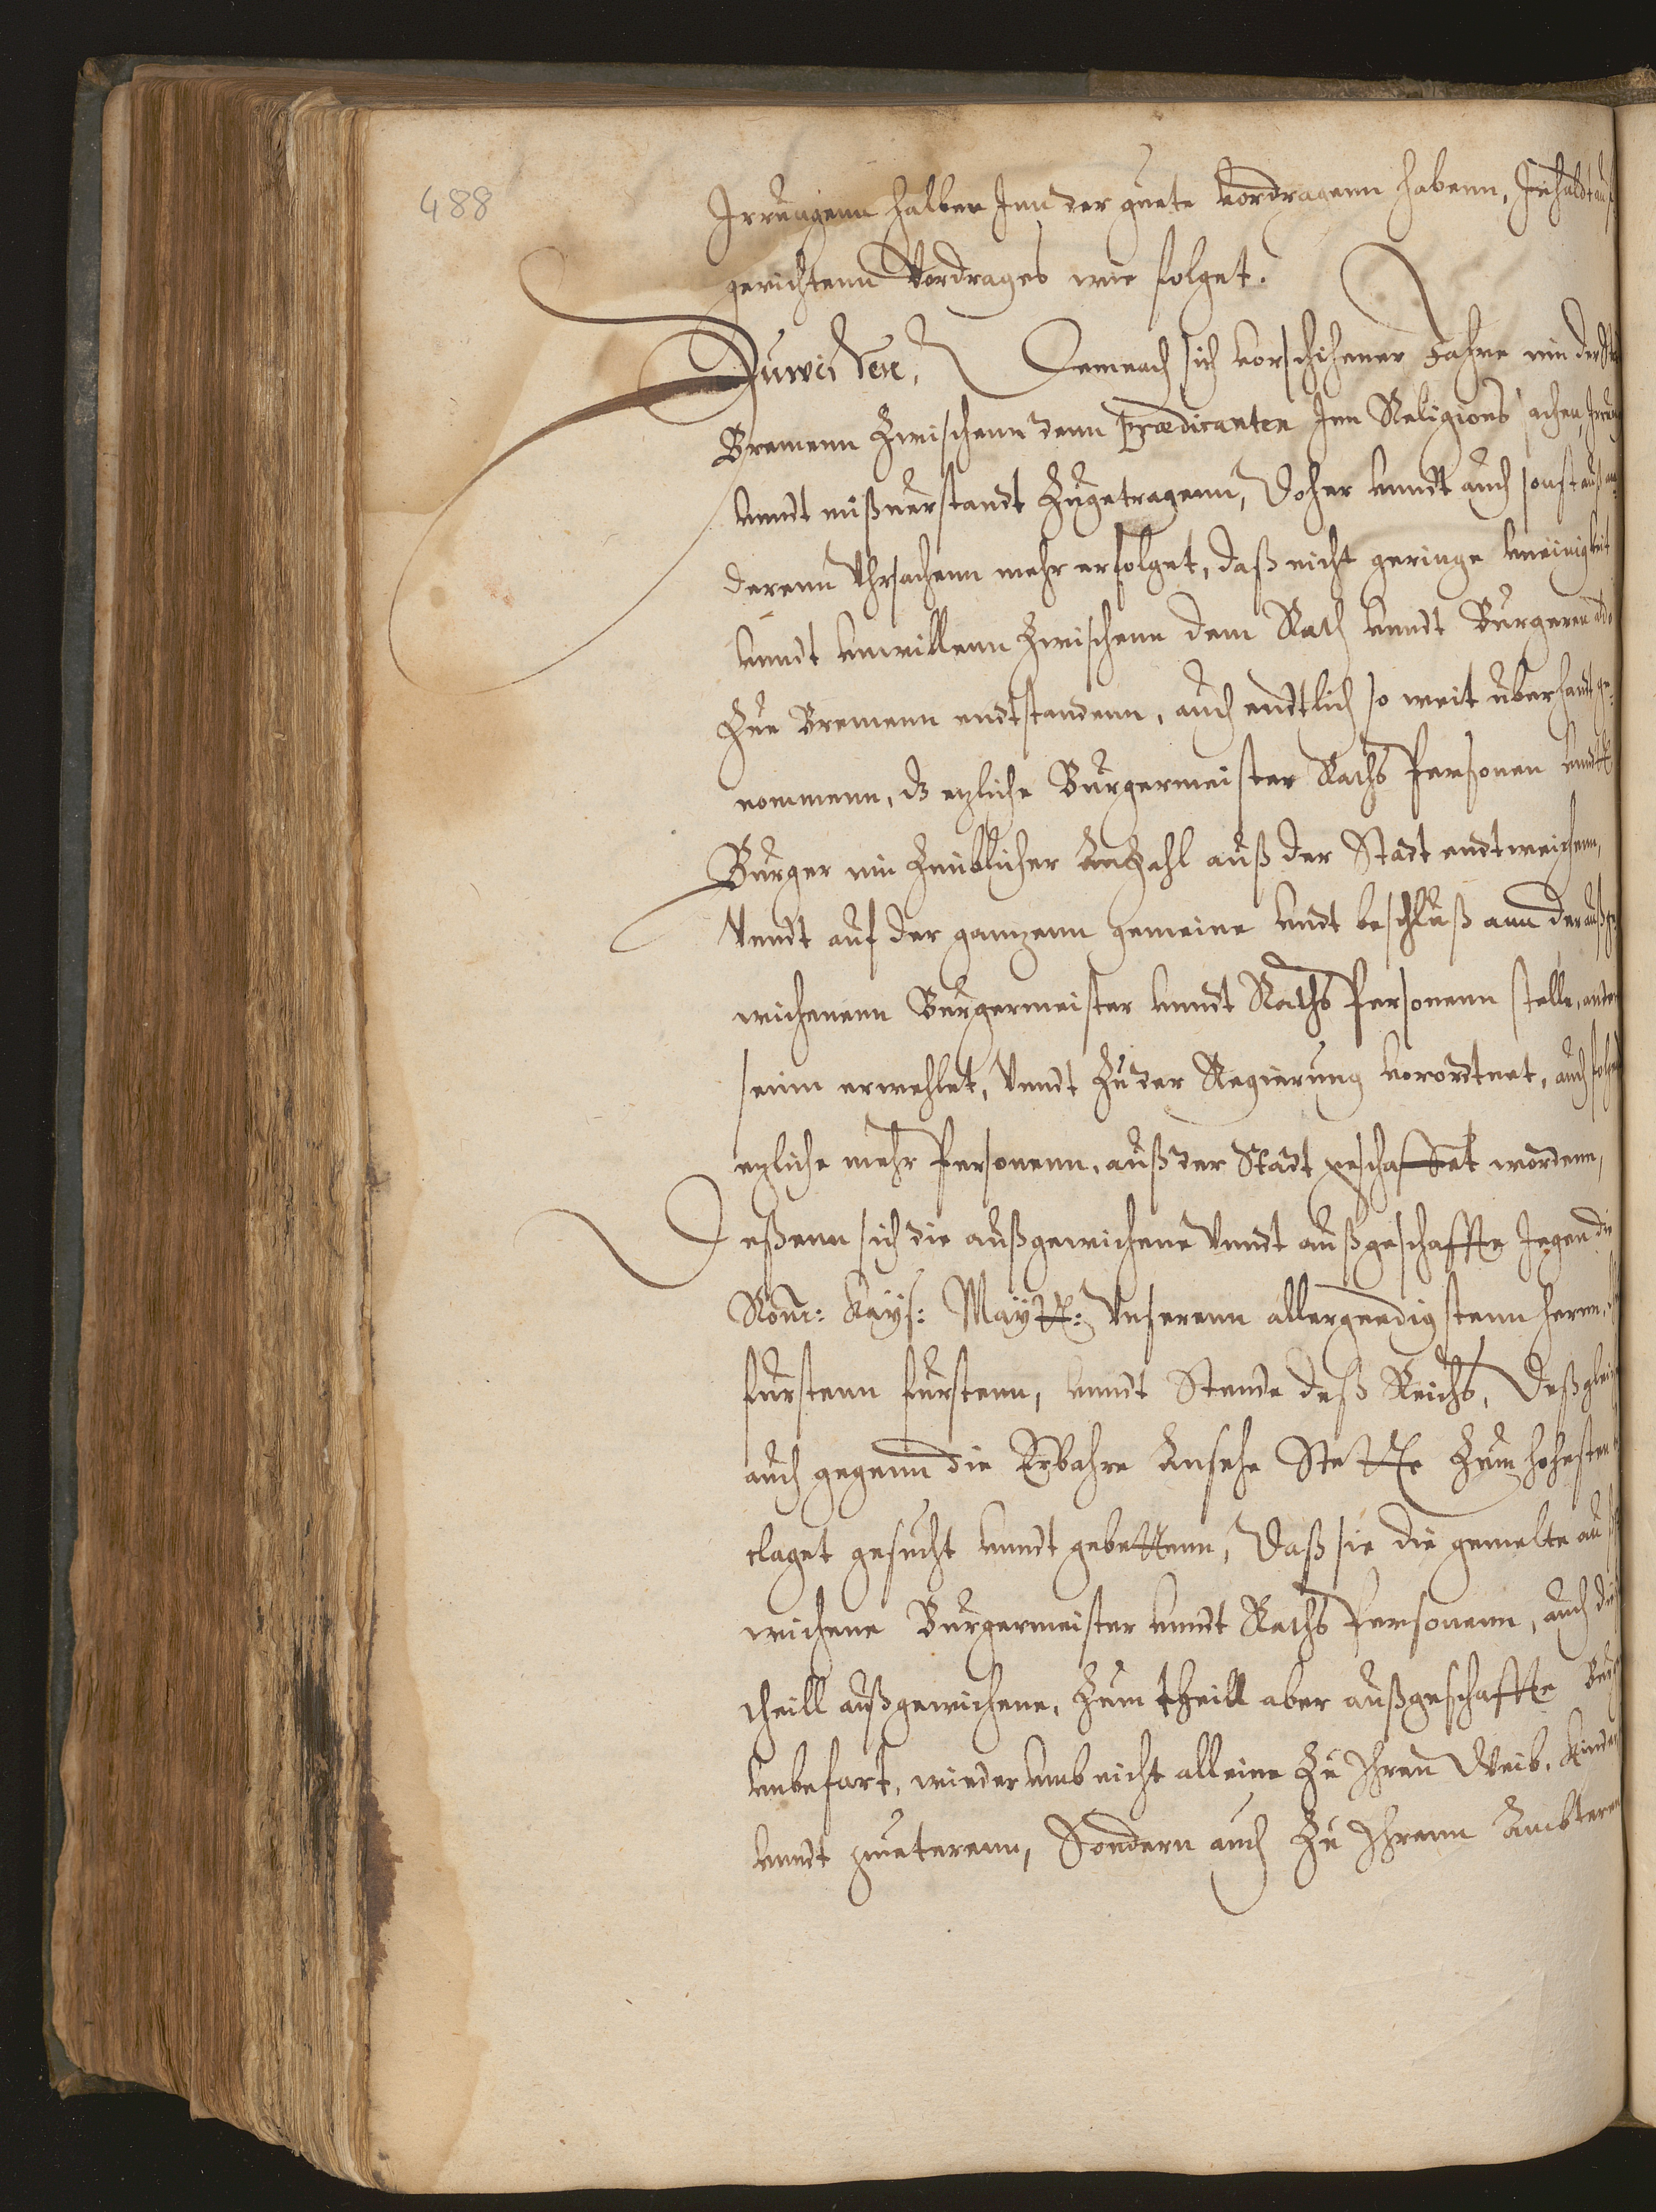 488
Irrungenn halber Inn der guete vordragenn habenn, Inhaldt auf
gerichtenn Vordrages wie folget.
Zuwissen, Demnach sich vorschihener Jahre inn der
Bremenn Zwischenn denn Prædicanten Inn Religions sachen,
vnndt mißuerstandt Zugetragenn, Doher vnndt auch sonst auß an
derenn Uhrsachenn mehr erfolget, daß nicht geringe vneinigkeit
vnndt vnwillenn Zwischenn dem Rath vnndt Burgeren aldo
Zue Bremenn endtstandenn, auch endtlich so weit uberhandt ge-
nommenn, dz ezliche Burgermeister Raths Personen vnndt
Burger inn Zimblicher Anzahl auß der Stadt endtweichenn,
Vnndt auf der ganzenn gemeine vndt beschluß ann der außge
wichenenn Burgermeister vnndt Raths Personenn stelle, ander
seinn erwehlet, Vnndt Zu der Regierung vorordtnet, auch folgendt
ezliche mehr Personenn, auß der Stadt geschaffet wordenn,
Deßenn sich die außgewichene Vnndt außgeschaffte Jegen die
Röm: Kayß: Maytt: Vnserenn allergnedigstenn herrn,
furstenn furstenn, vnndt Stende deß Reichs, Deßgleich
auch gegenn die Erbahre Ansehe Stette Zum hohesten
claget gesucht vnndt gebettenn, Daß sie die gemelte auß
wichene Burgermeister vnndt Raths Personenn, auch die
theill außgewichene, Zum theill aber außgeschaffte
vnbefart, wiederumb nicht alleine Zu Ihren Weib, Kinder
vnndt gueterenn, Sondern auch Zu Ihrenn Ambteren